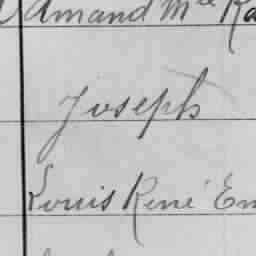 Amand Mce
Joseph
Louis René